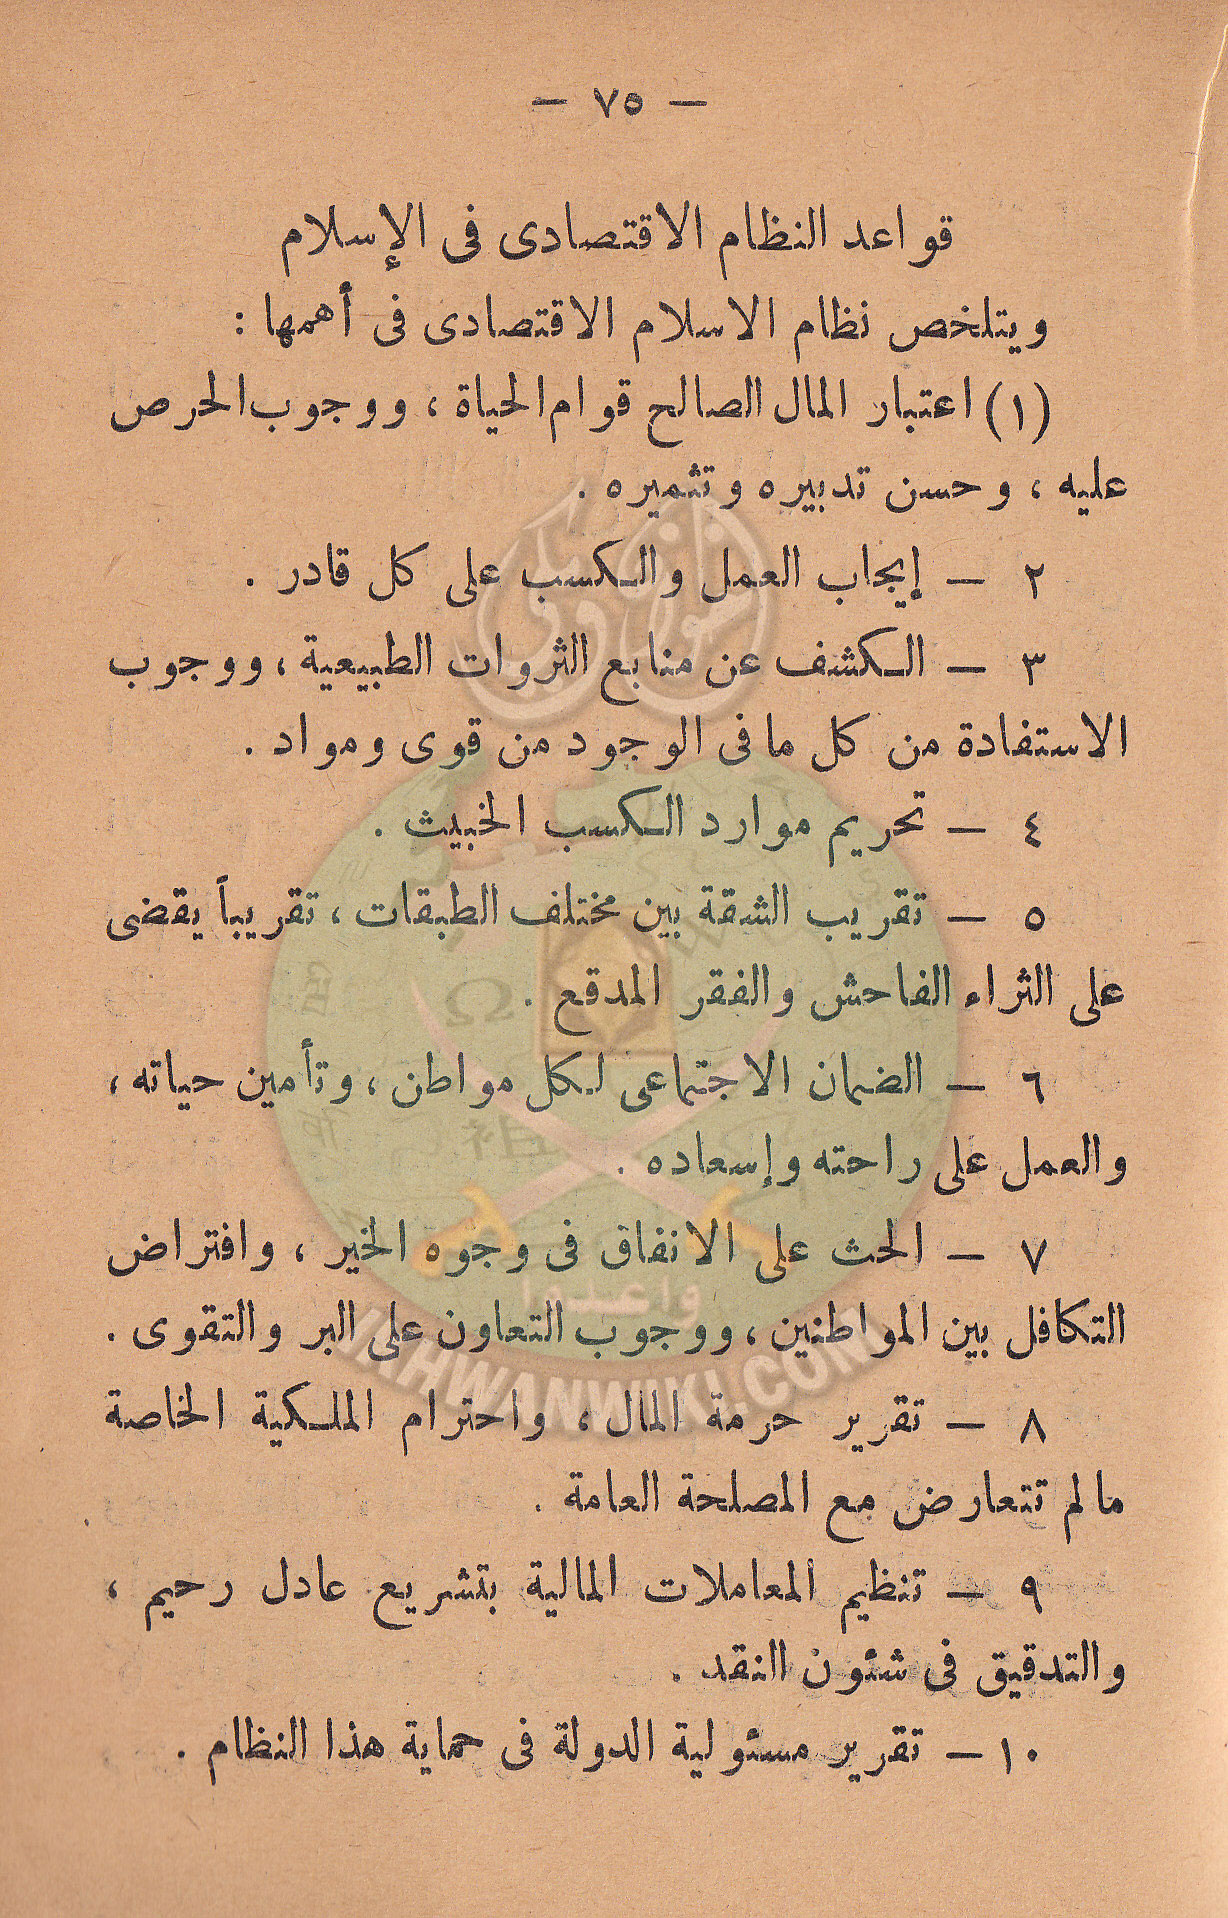 — ٧٥ —
قواعد النظام الاقتصادى فى الإسلام
ويتلخص نظام الاسلام الاقتصادى فى أهمها :
(١) اعتبار المال الصالح قوام الحياة ، ووجوب الحرص
عليه ، وحسن تدبيره وتثميره .
٢ — إيجاب العمل والكسب على كل قادر .
٣ — الكشف عن منابع الثروات الطبيعية ، ووجوب
الاستفادة من كل ما فى الوجود من قوى ومواد .
٤ — تحريم موارد الكسب الخبيث .
٥ — تقريب الشقة بين مختلف الطبقات ، تقريباً يقضى
على الثراء الفاحش والفقر المدقع .
٦ — الضمان الاجتماعى لكل مواطن ، وتأمين حياته ،
والعمل على راحته وإسعاده .
٧ — الحث على الانفاق فى وجوه الخير ، وافتراض
التكافل بين المواطنين ، ووجوب التعاون على البر والتقوى .
٨ — تقرير حرمة المال ، واحترام الملكية الخاصة
مالم تتعارض مع المصلحة العامة .
٩ — تنظيم المعاملات المالية بتشريع عادل رحيم ،
والتدقيق فى شئون النقد .
١٠ — تقرير مسئولية الدولة فى حماية هذا النظام .
إخوان ويكي
وأعدوا
IKHWANWIKI.COM